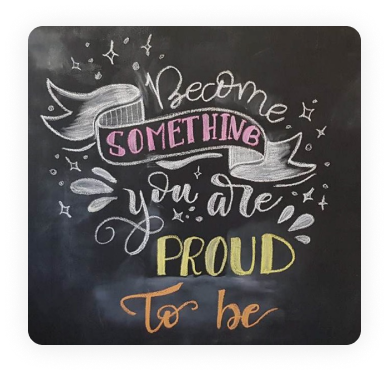 Become
SOMETHING
you are
PROUD
To be